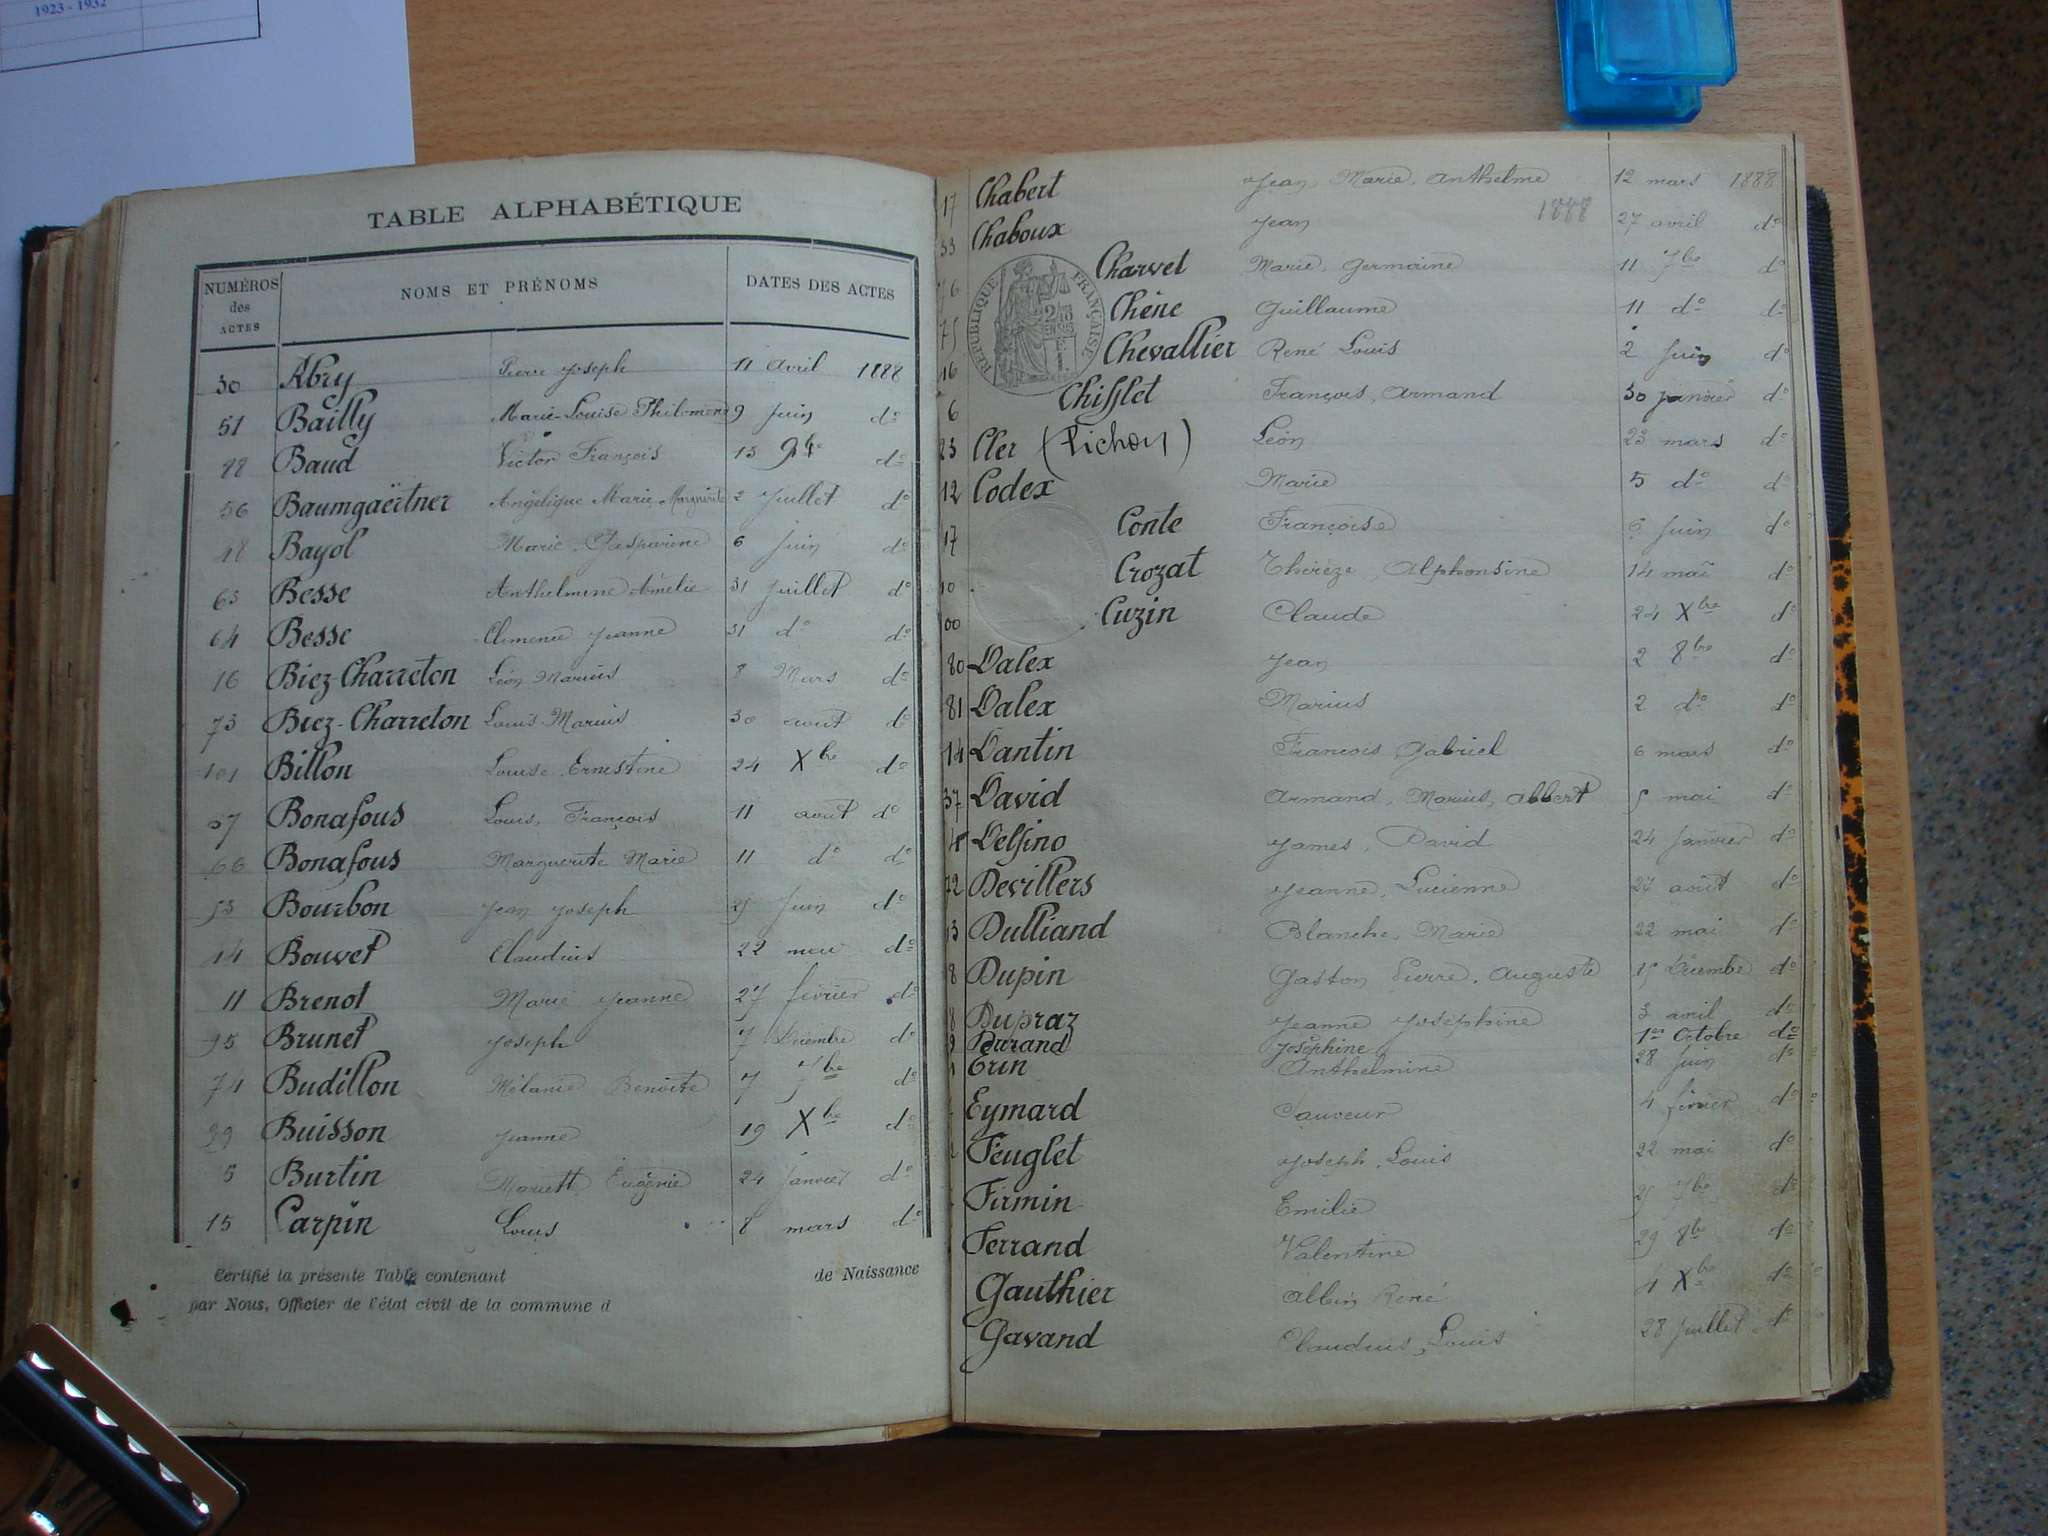 1923 - 1932
TABLE ALPHABÉTIQUE
NUMÉROS des ACTES NOMS ET PRÉNOMS DATES DES ACTES
30 Abry Pierre Joseph 11 Avril 1888
51 Bailly Marie-Louise Philomène 9 Juin do
88 Baud Victor François 13 9bre do
56 Baumgaërtner Angélique Marie Marguerite 2 Juillet do
48 Bayol Marie Gasparine 6 Juin do
63 Besse Anthelmine Amélie 31 Juillet do
64 Besse Clémence Jeanne 31 do do
16 Biez-Charreton Léon Marius 8 Mars do
73 Biez-Charreton Louis Marius 30 aout do
101 Billon Louise Ernestine 24 Xbre do
67 Bonafous Louis, François 11 août do
66 Bonafous Marguerite Marie 11 do do
53 Bourbon Jean Joseph Juin do
Bouvet Claudius 22 mai do
11 Brenot Marie Jeanne 27 février do
95 Brunet Joseph 7 Décembre do
74 Budillon Mélanie Benoite 7 7bre do
99 Buisson Jeanne 19 Xbre do
5 Burtin Mariett Eugénie 24 Janvier do
15 Carpin Louis 8 mars do
Certifié la présente Table contenant de Naissance
par Nous, Officier de l'état civil de la commune d
17 Chabert Jean, Marie, Anthelme 12 mars 1888
1888
33 Chaboux Jean 27 avril do
RÉPUBLIQUE FRANÇAISE
76 Charvet Marie, Germaine 11 7bre do
75 Chêne Guillaume 11 do do
46 Chevallier René Louis 2 Juin do
6 Chifflet François, Armand 30 janvier do
23 Cler (Pichon) Léon 23 mars do
12 Codex Marie 5 do do
47 Conte Françoise 6 Juin do
40 Crozat Thérèze, Alphonsine 14 mai do
100 Cuzin Claude 24 Xbre do
80 Dalex Jean 2 8bre do
81 Dalex Marius 2 do do
14 Dantin François, Gabriel 6 mars do
37 David Armand, Marius, Albert 5 mai do
4 Delfino James, David 24 Janvier do
72 Devillers Jeanne, Lucienne 27 août do
3 Dulliand Blanche, Marie 22 mai do
8 Dupin Gaston Pierre, Auguste 15 Décembre do
8 Dupraz Jeanne Joséphine 3 avril do
9 Durand Joséphine 1er Octobre do
Erin Anthelmine 28 Juin do
Eymard Sauveur 4 février do
Feuglet Joseph, Louis 22 mai do
Firmin Emilie 7bre do
Ferrand Valentine 29 8bre do
Gauthier Albin René 4 Xbre do
Gavand Claudius, Louis 28 Juillet do